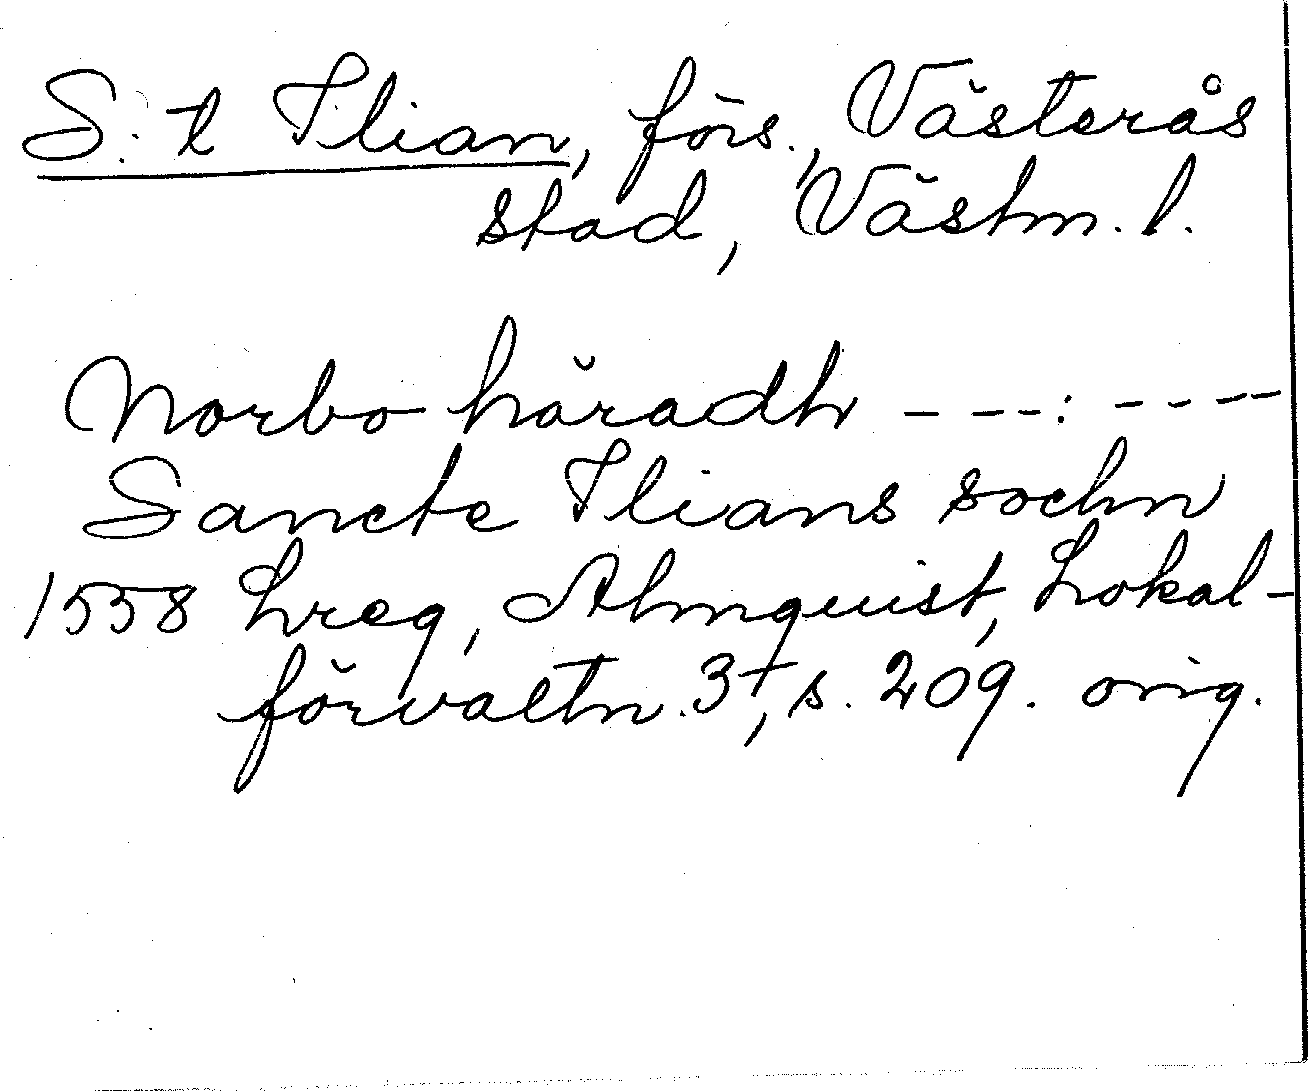 S:t Ilian, förs., Västerås
stad, Västm. l.
Norbo häradh - ---: - - - - -
Sancte Ilians sochn
1558 Lreg, Almquist, Lokal-
förvaltn. 3†, s. 209. orig.